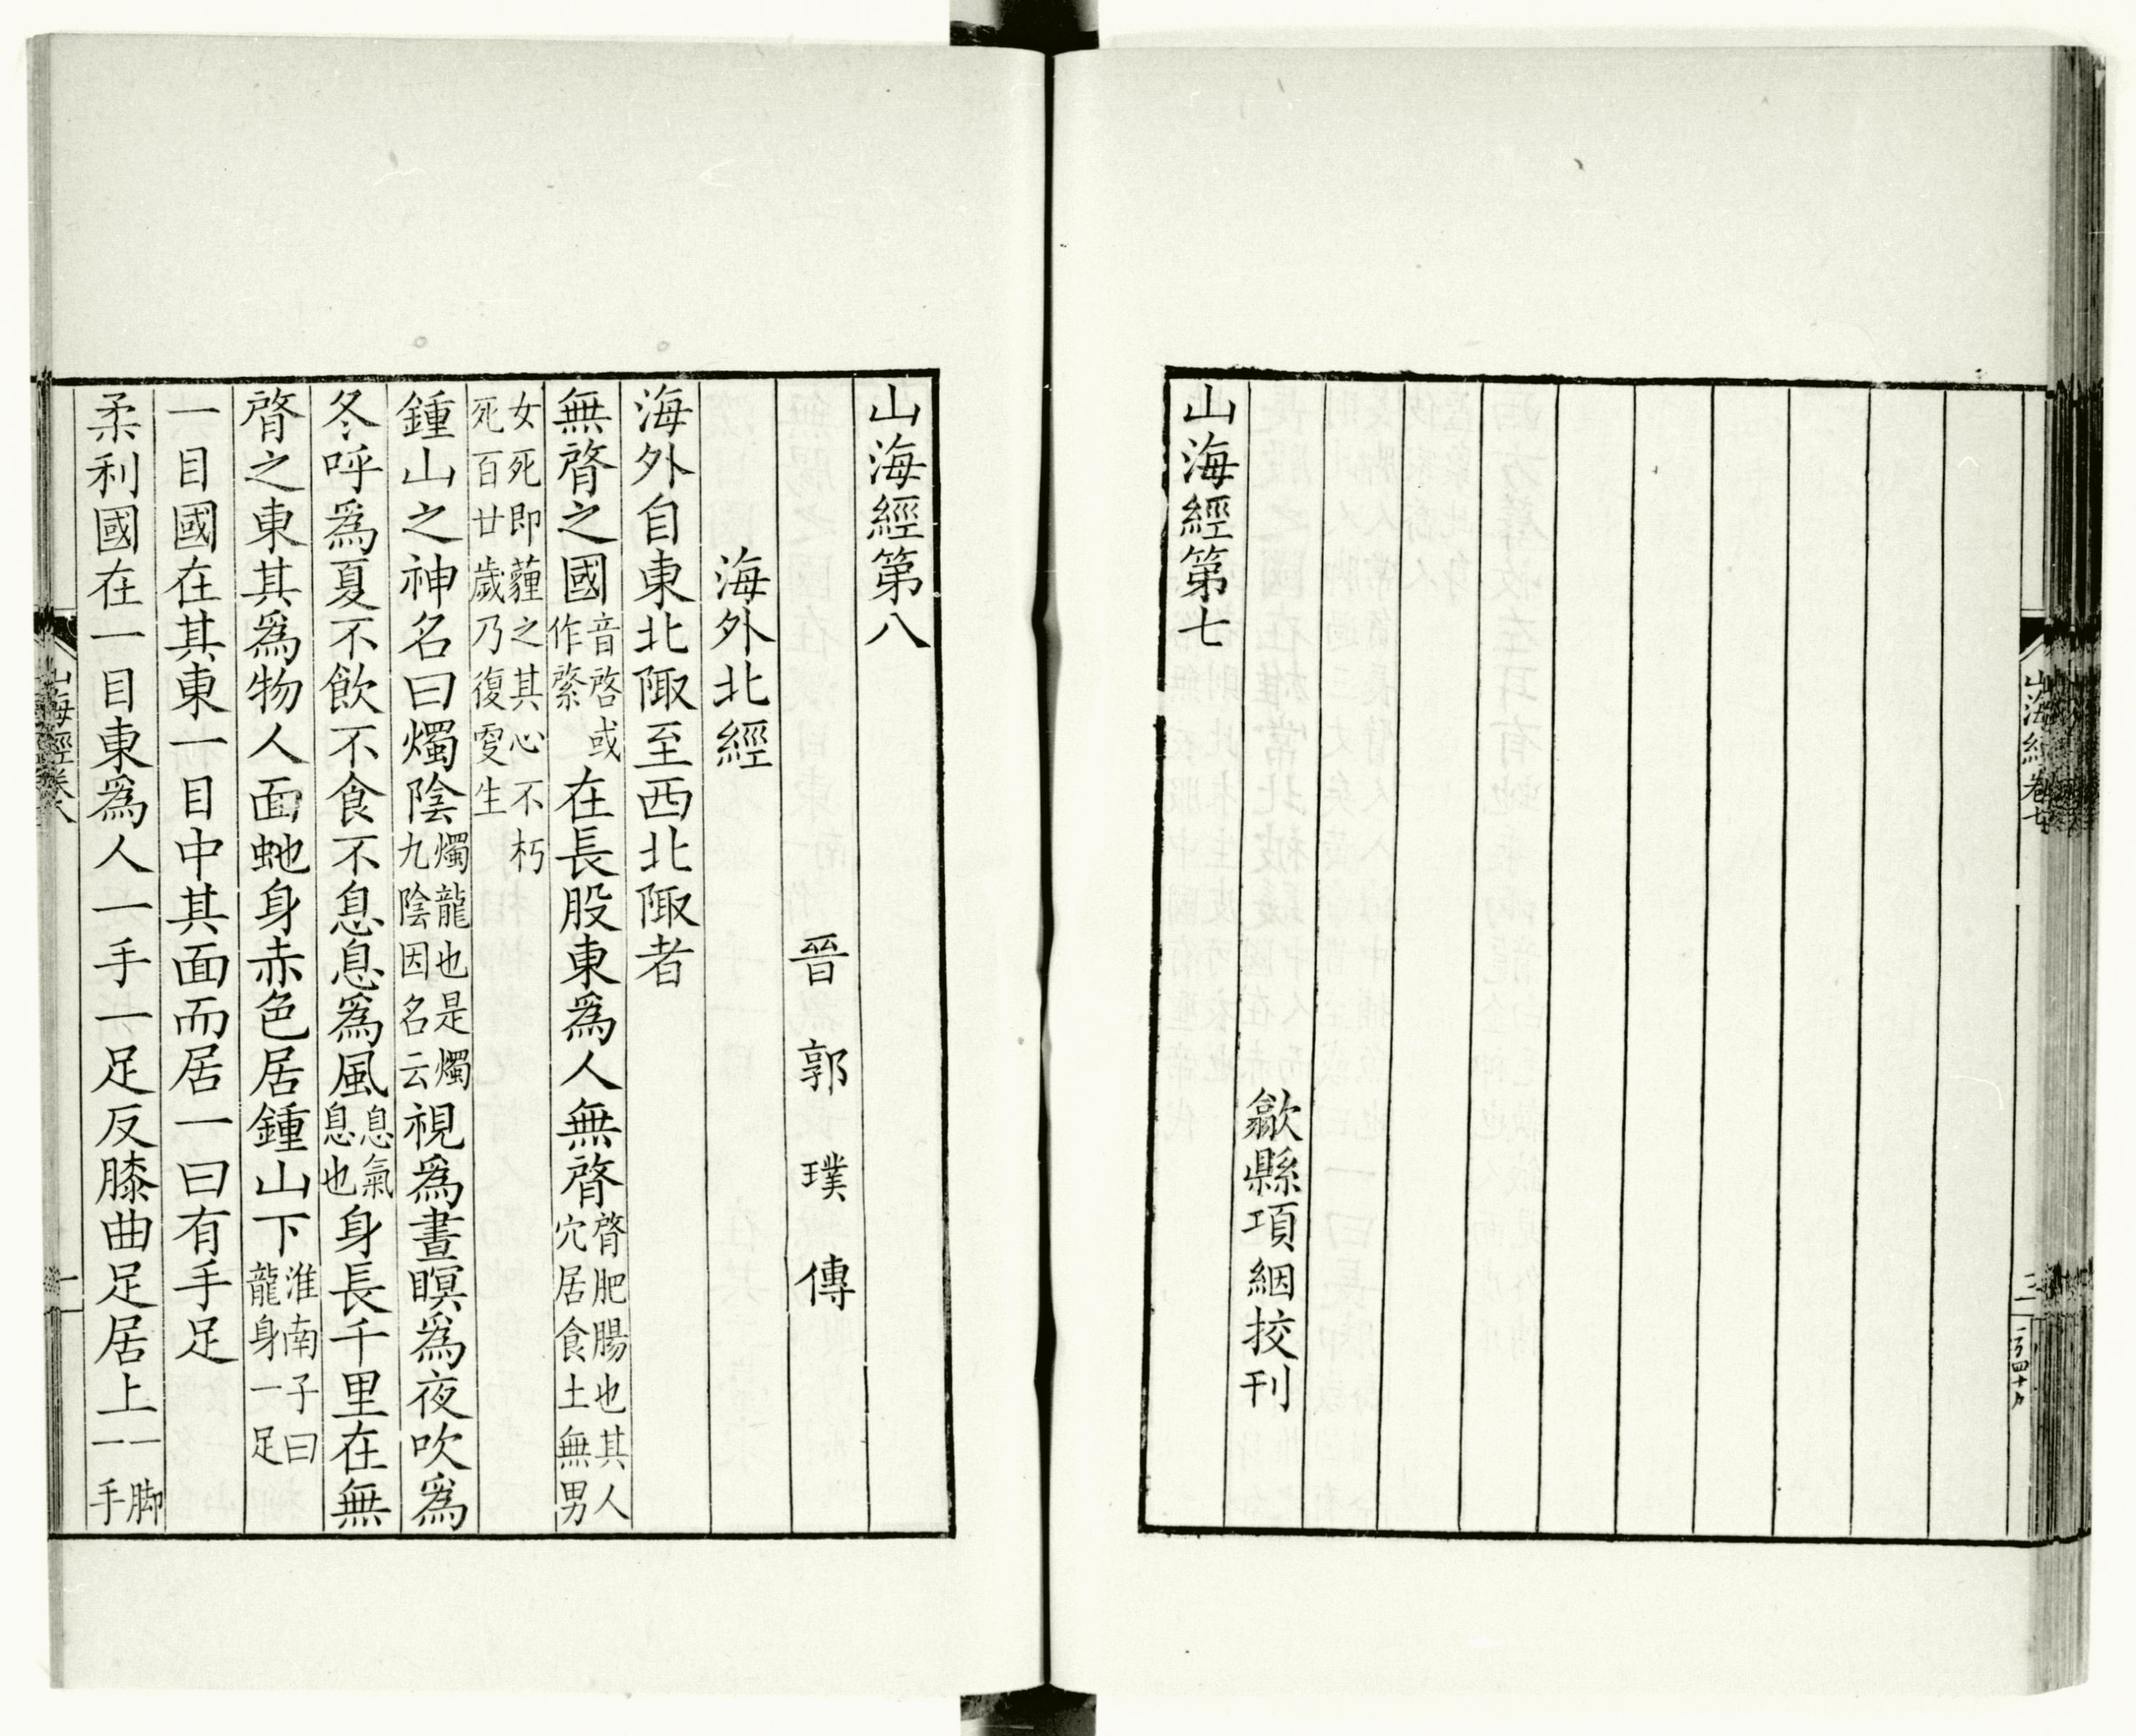 歙縣項絪挍刊
山海經第七
山海經第八
晉郭璞傳
海外北經
海外自東北陬至西北陬者
無䏿之國音啓或作綮在長股東爲人無䏿䏿肥腸也其人穴居食土無男
女死即薶之其心不朽死百廿歲乃復更生
鍾山之神名曰燭陰燭龍也是燭九陰因名云視爲晝瞑爲夜吹爲
冬呼爲夏不飲不食不息息爲風息氣息也身長千里在無
䏿之東其爲物人面虵身赤色居鍾山下淮南子曰龍身一足
一目國在其東一目中其面而居一曰有手足
柔利國在一目東爲人一手一足反膝曲足居上一脚一手
山海經卷八
一